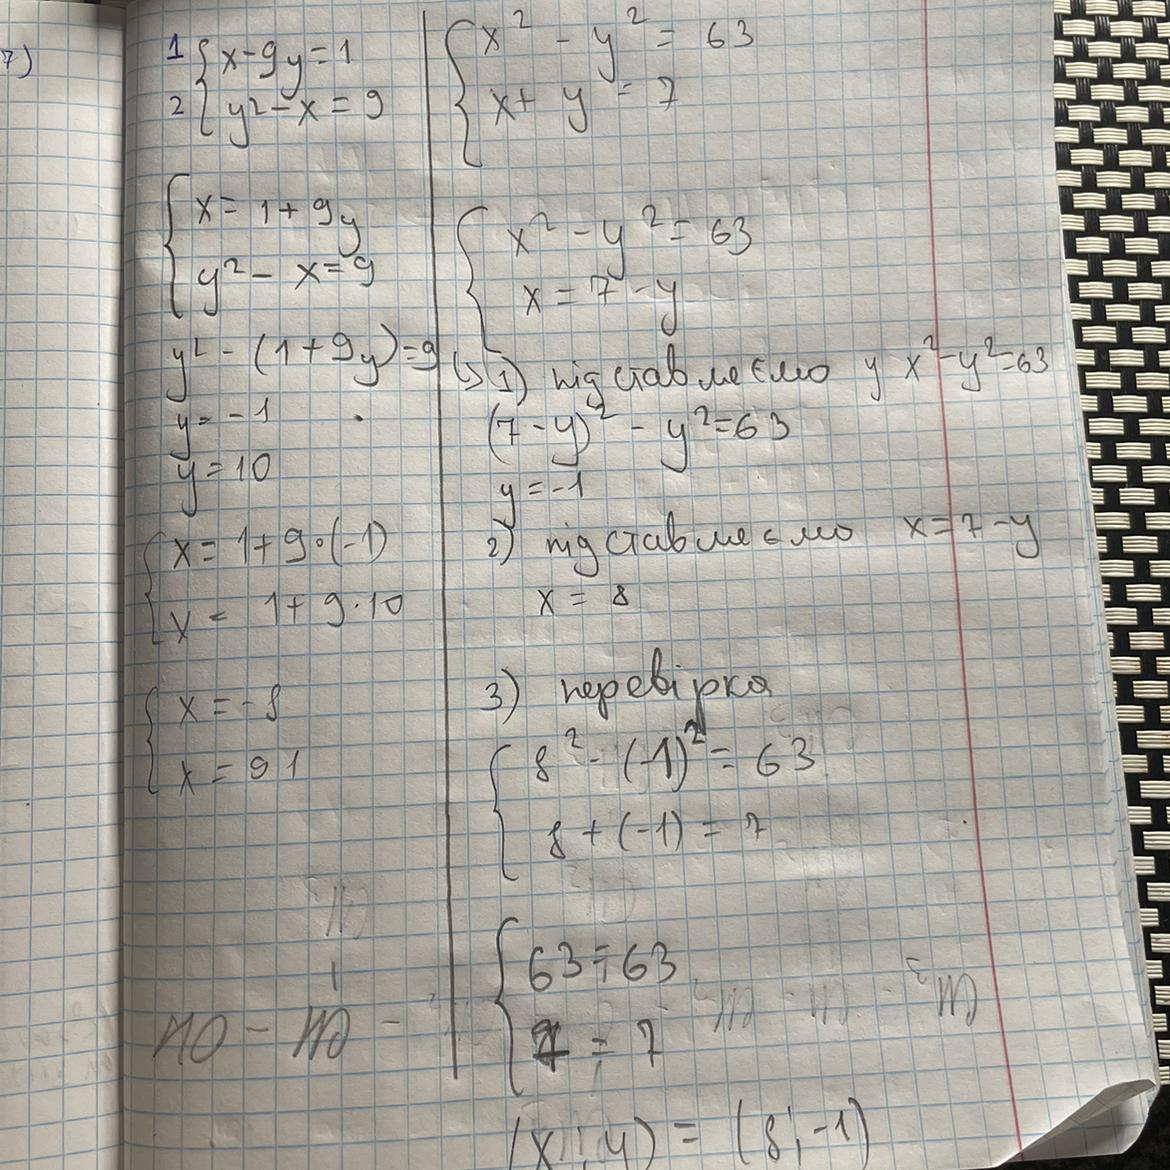 7)
1 { x-9y=1
2 { y²-x=9
{ x=1+9y
{ y²-x=9
y²-(1+9y)=9
y=-1
y=10
{ x=1+9·(-1)
{ x=1+9·10
{ x=-8
{ x=91
{ x²-y²=63
{ x+y=7
{ x²-y²=63
{ x=7-y
↳ 1) підставлеємо у x²-y²=63
(7-y)²-y²=63
y=-1
2) підставлеємо x=7-y
x=8
3) перевірка
{ 8²-(-1)²=63
{ 8+(-1)=7
{ 63=63
{ 7=7
(x;y)=(8;-1)